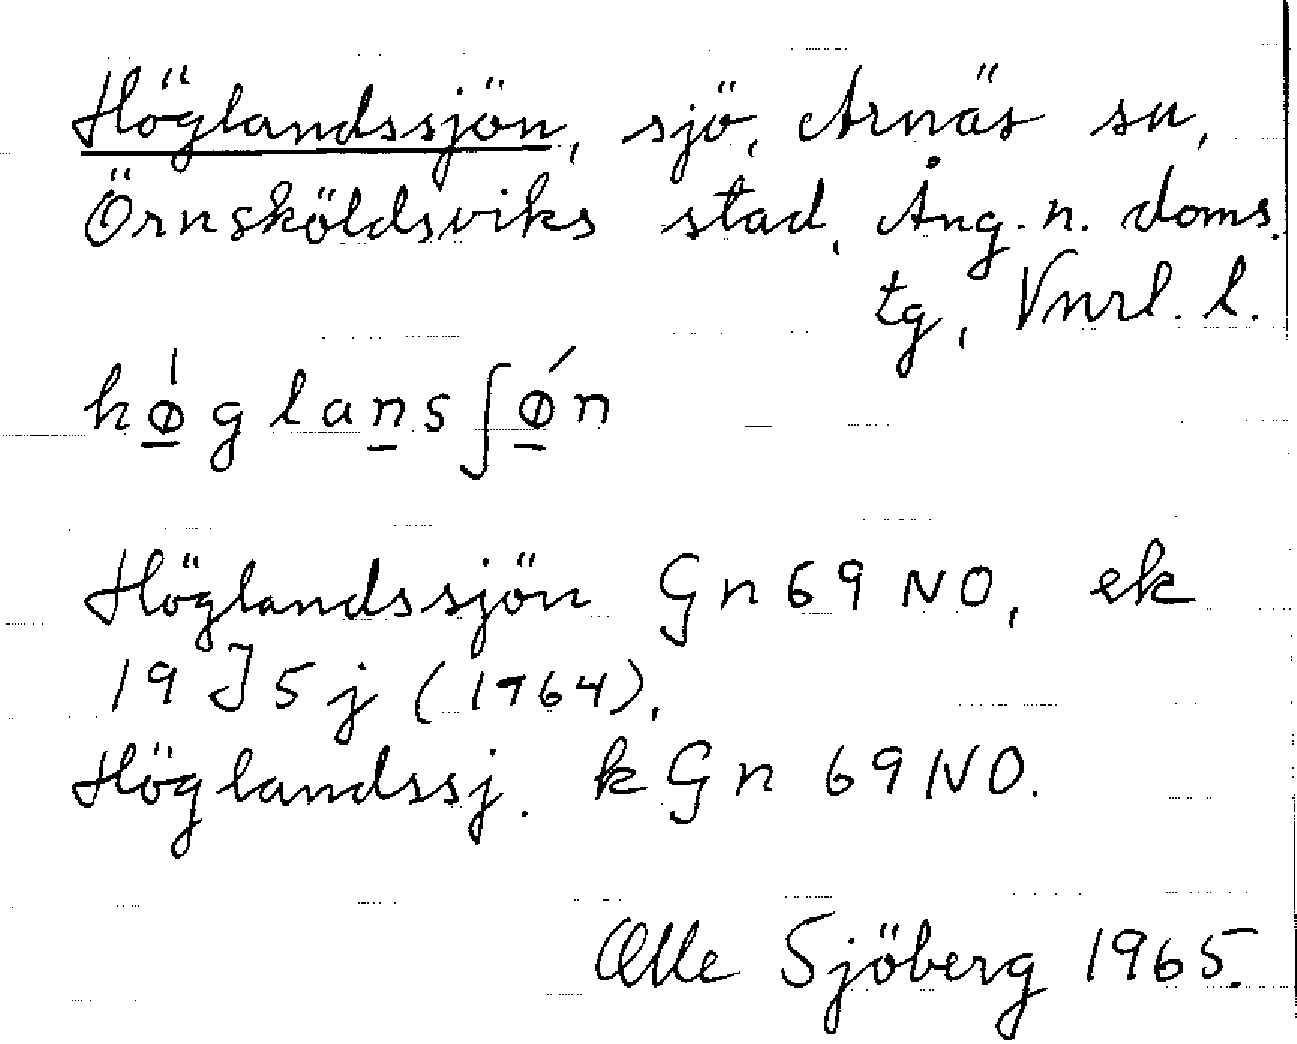 Höglandssjön, sjö, Arnäs sn,
Örnsköldsviks stad, Ång. n. doms.
tg, Vnrl. l.
hø̲̍glan̲sʃǿ̲n
Höglandssjön Gn 69 NO, ek
19 J 5 j (1964),
Höglandssj. k Gn 69 NO.
Olle Sjöberg 1965.